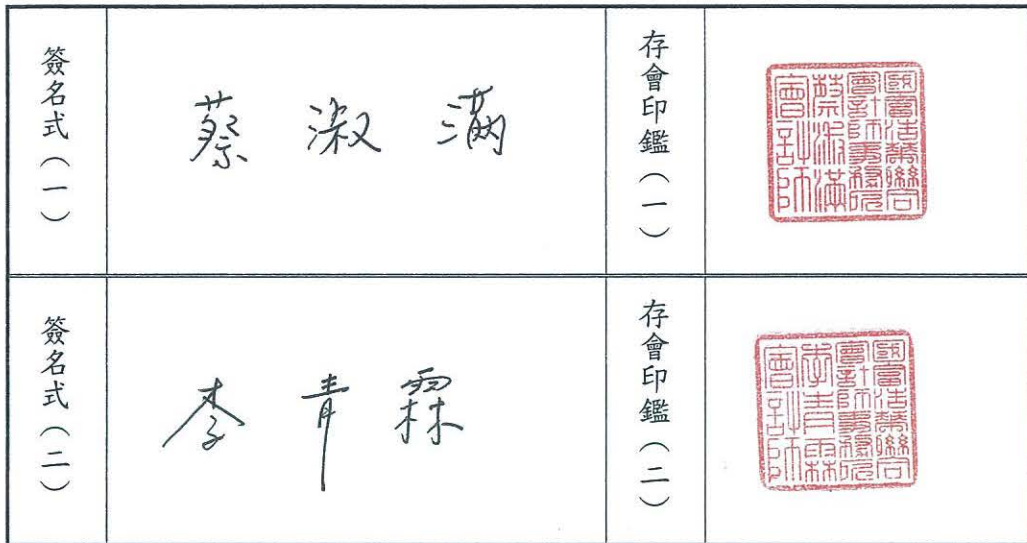 簽名式(一)
蔡淑滿
存會印鑑(一)
國富浩華聯合
會計師事務所
蔡淑滿
會計師
簽名式(二)
李青霖
存會印鑑(二)
國富浩華聯合
會計師事務所
李青霖
會計師